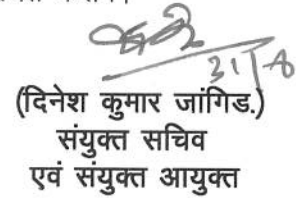 31/8
(दिनेश कुमार जांगिड.)
संयुक्त सचिव
एवं संयुक्त आयुक्त